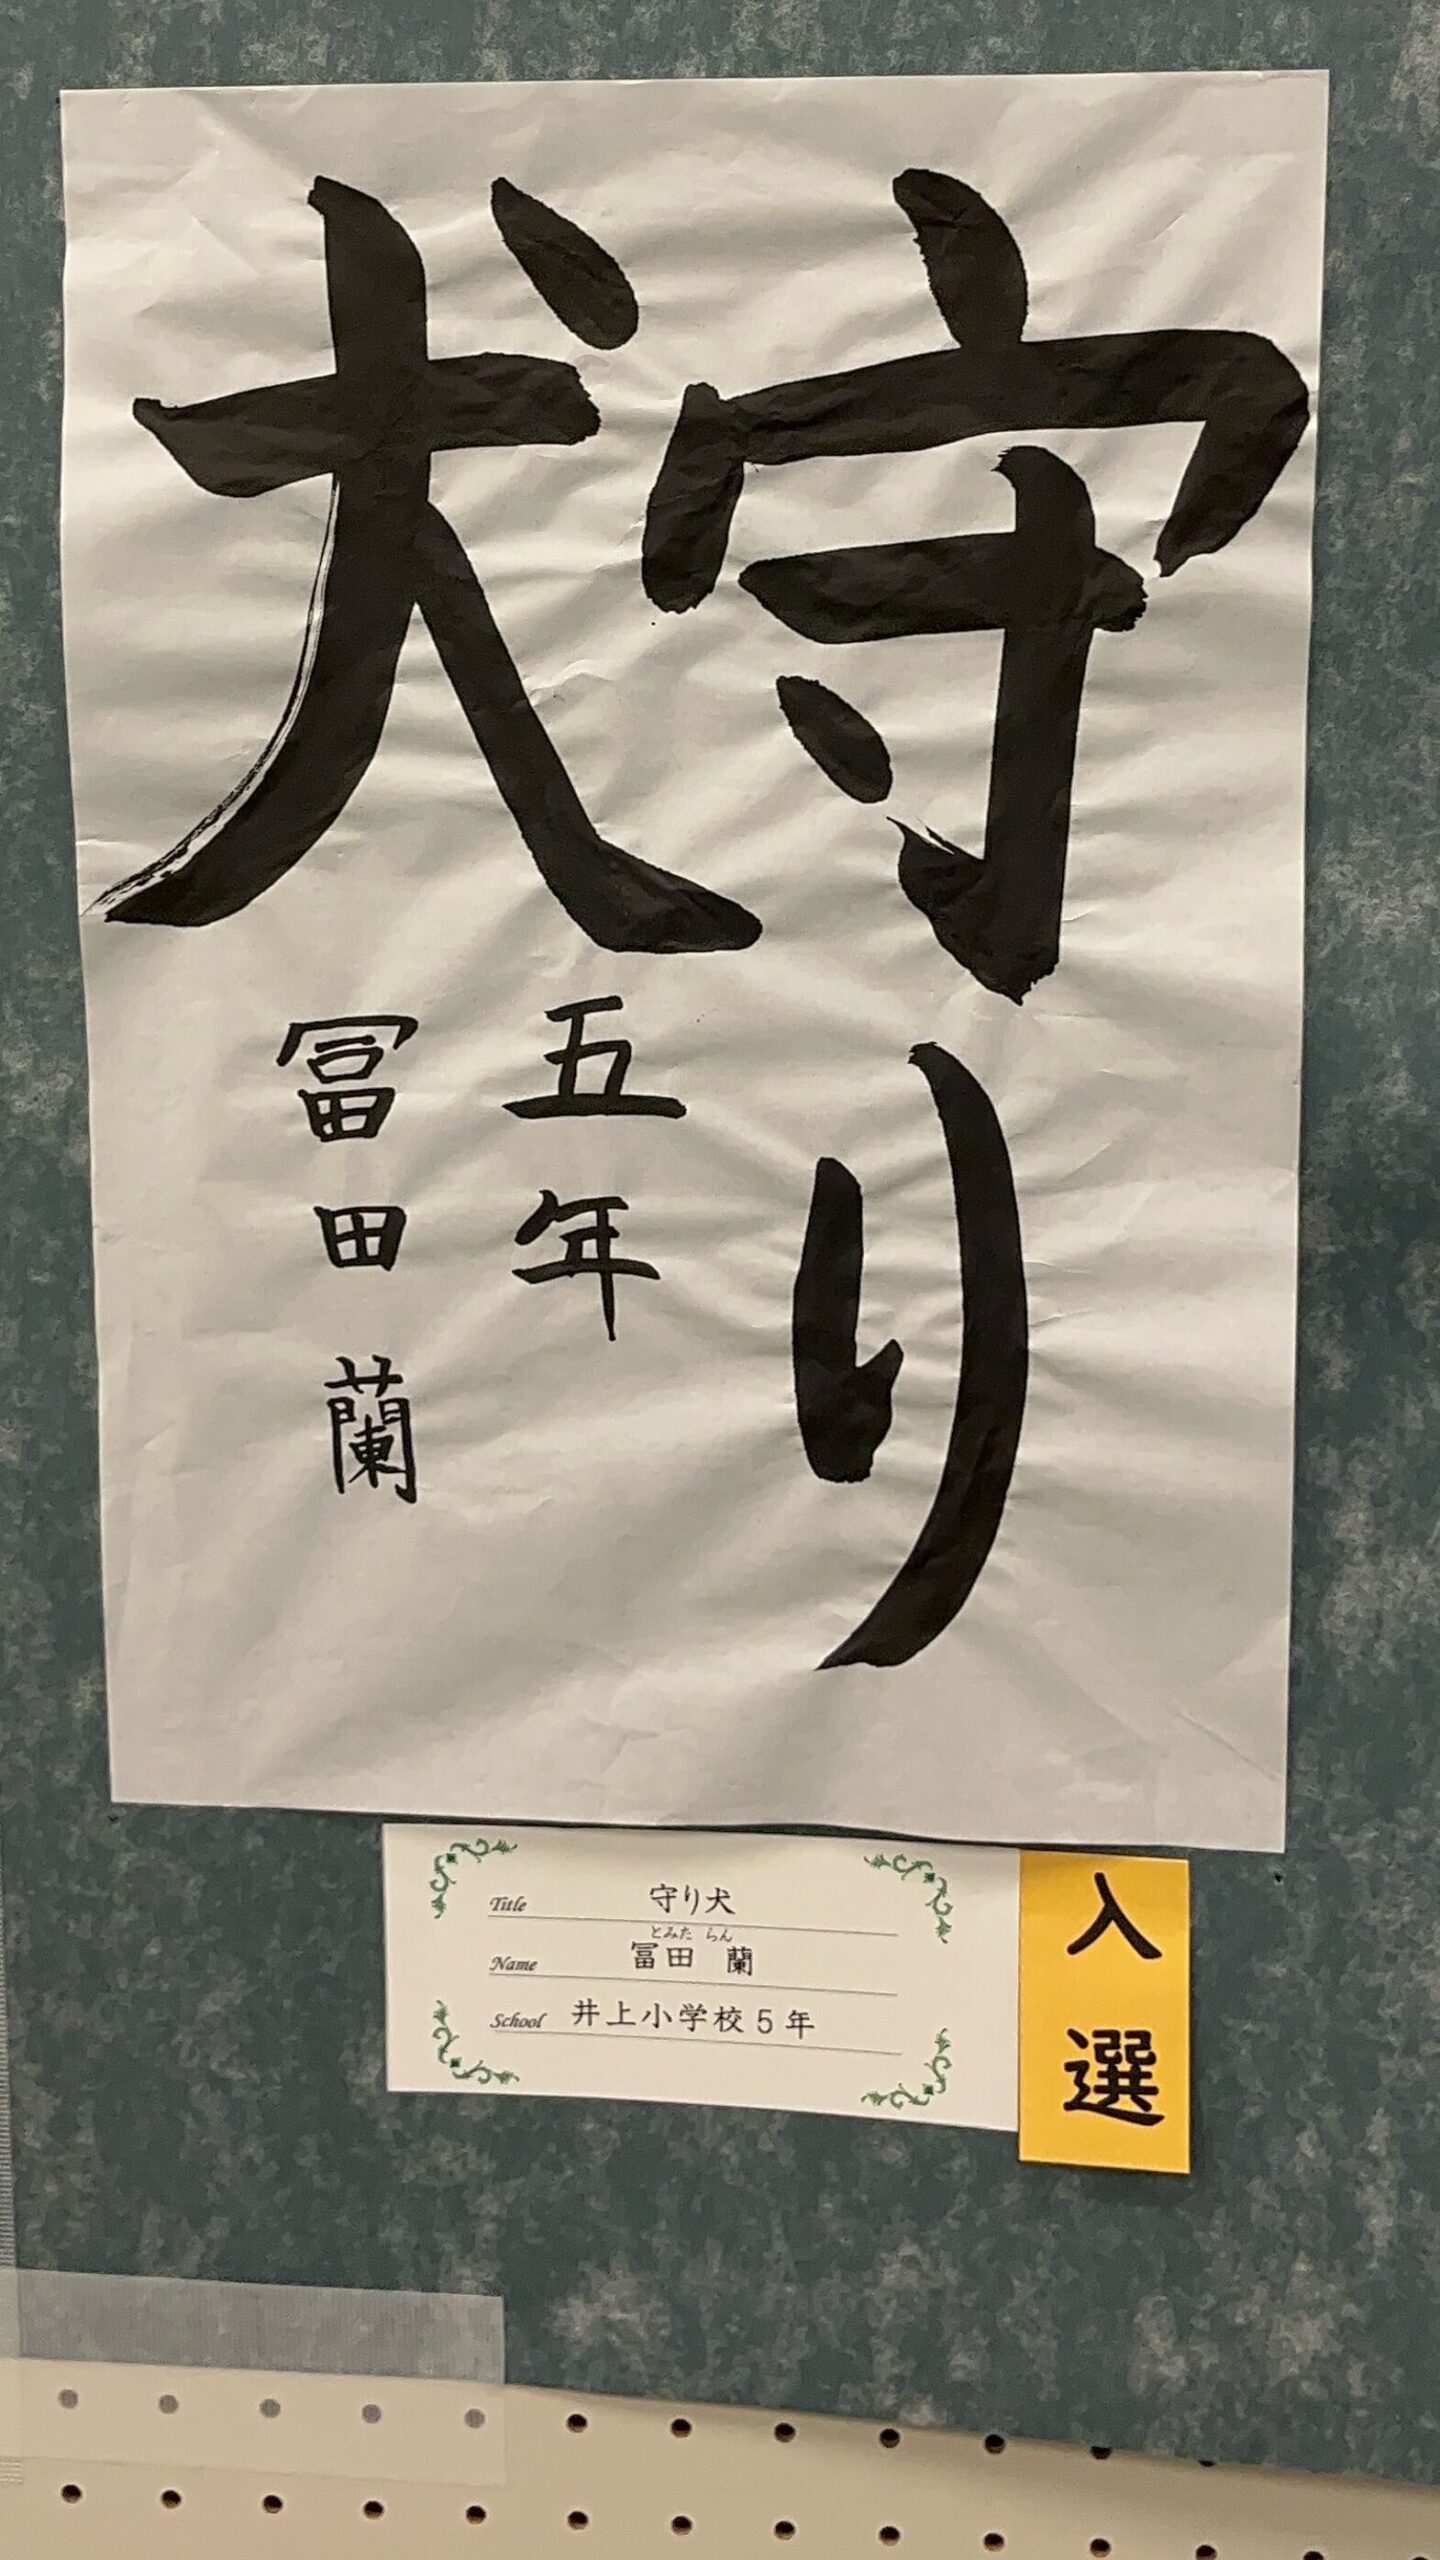 守り
犬
五年
冨田蘭
Title 守り犬
とみた らん
Name 冨田 蘭
School 井上小学校5年
入選